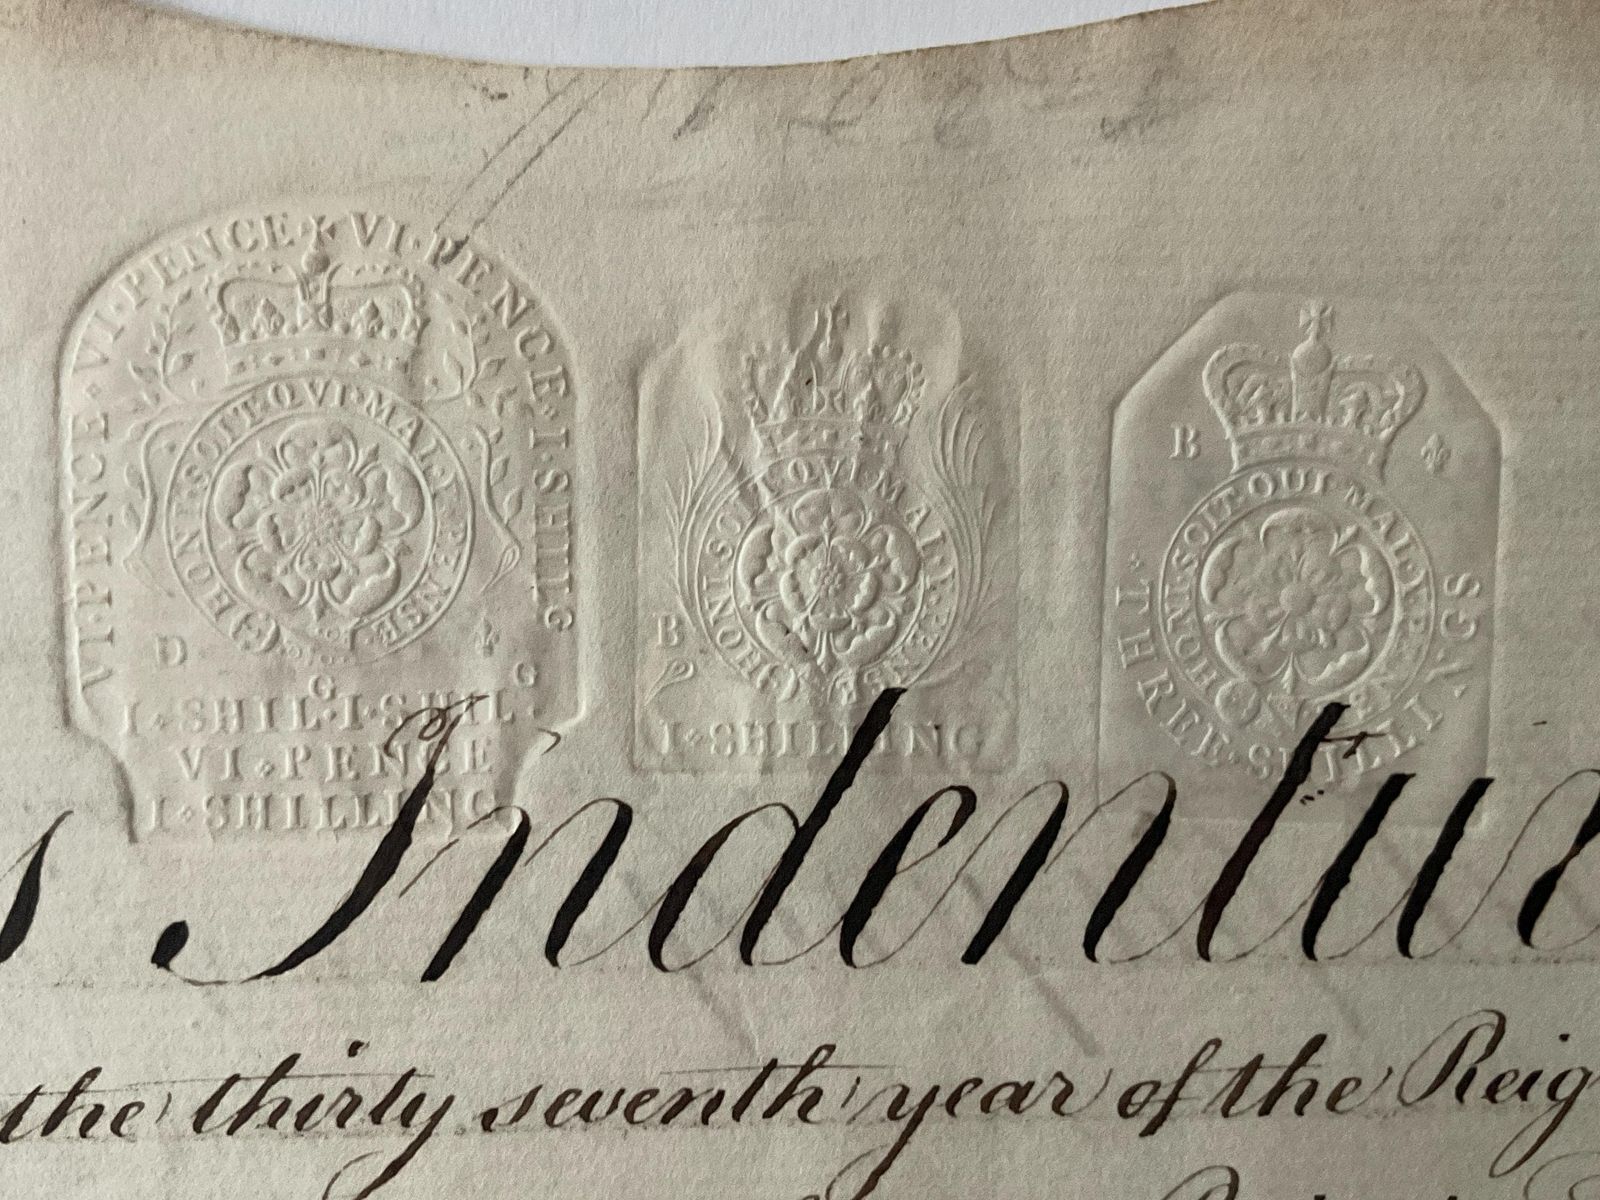 VI·PENCE·VI·PENCE·VI·PENCE·I·SHILG
HONI·SOIT·QVI·MAL·Y·PENSE
D
G G
I·SHIL·I·SHIL·
VI·PENCE
I·SHILLING
HONI·SOIT·QVI·MAL·Y·PENSE
B
I·SHILLING
B
HONI·SOIT·QUI·MAL·Y·PENSE
THREE·SHILLI V·GS
s Indentu
the thirty seventh year of the Reig